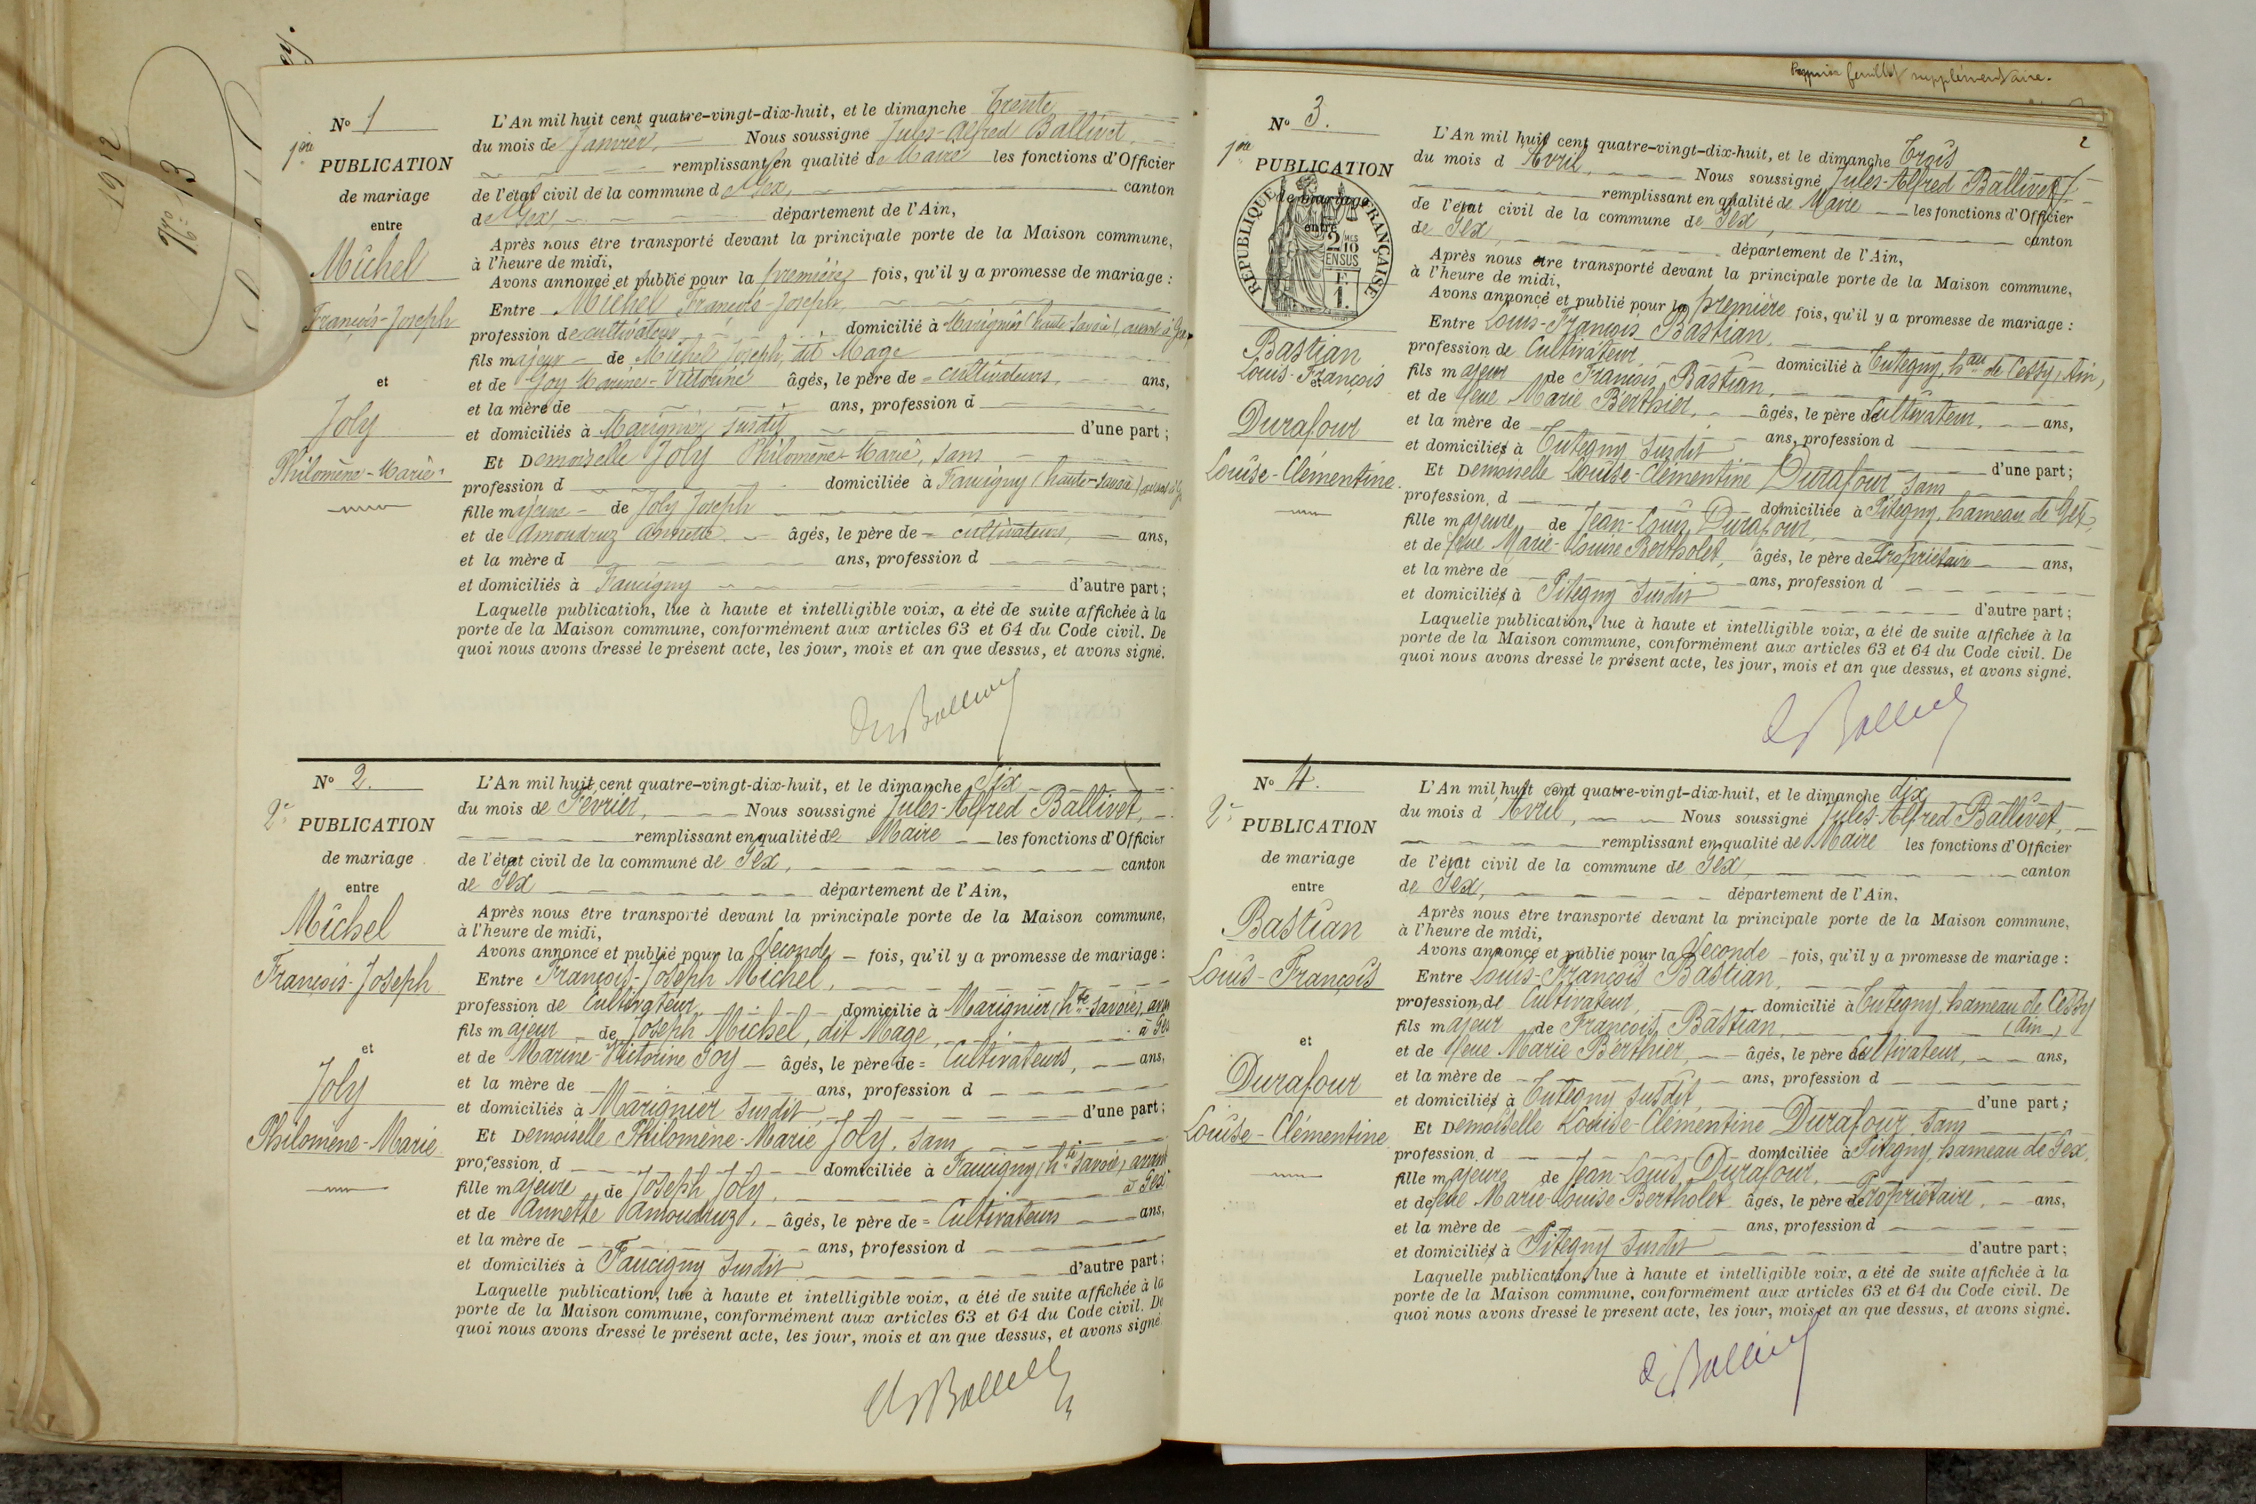 1912
No. 13
Nº 1
1ère
PUBLICATION
de mariage
entre
Michel
François-Joseph
et
Joly
Philomène-Marie
L'An mil huit cent quatre-vingt-dix-huit, et le dimanche Trente
du mois de Janvier, Nous soussigné Jules-Alfred Ballivet,
remplissant en qualité de Maire les fonctions d'Officier
de l'état civil de la commune d e Gex, canton
de Gex, département de l'Ain,
Après nous être transporté devant la principale porte de la Maison commune,
à l'heure de midi,
Avons annoncé et publié pour la première fois, qu'il y a promesse de mariage :
Entre Michel François-Joseph,
profession de cultivateur domicilié à Marignier (haute-Savoie), avant à Gex
fils majeur de Michel Joseph, dit Mage
et de Joy Marine-Victorine âgés, le père de = cultivateurs, ans,
et la mère de ans, profession d
et domiciliés à Marignier susdit d'une part ;
Et Demoiselle Joly Philomène-Marie, sans
profession d domiciliée à Faucigny (haute-Savoie)
fille majeure de Joly Joseph
et de Amoudruz Annette âgés, le père de = cultivateurs, ans,
et la mère d ans, profession d
et domiciliés à Faucigny d'autre part ;
Laquelle publication, lue à haute et intelligible voix, a été de suite affichée à la
porte de la Maison commune, conformément aux articles 63 et 64 du Code civil. De
quoi nous avons dressé le présent acte, les jour, mois et an que dessus, et avons signé.
Nº 2.
2e
PUBLICATION
de mariage
entre
Michel
François-Joseph
et
Joly
Philomène-Marie
L'An mil huit cent quatre-vingt-dix-huit, et le dimanche Six
du mois de Février, Nous soussigné Jules-Alfred Ballivet,
remplissant en qualité de Maire les fonctions d'Officier
de l'état civil de la commune de Gex, canton
de Gex département de l'Ain,
Après nous être transporté devant la principale porte de la Maison commune,
à l'heure de midi,
Avons annoncé et publié pour la Seconde fois, qu'il y a promesse de mariage :
Entre François-Joseph Michel,
profession de Cultivateur domicilié à Marignier (hte-Savoie), avant
fils majeur de Joseph Michel, dit Mage, à Gex
et de Marine-Victorine Joy âgés, le père de = Cultivateurs, ans,
et la mère de ans, profession d
et domiciliés à Marignier susdit, d'une part ;
Et Demoiselle Philomène-Marie Joly, sans
profession d domiciliée à Faucigny, hte Savoie, avant
fille majeure de Joseph Joly, à Gex
et de Annette Amoudruz, âgés, le père de = Cultivateurs ans,
et la mère de ans, profession d
et domiciliés à Faucigny susdit d'autre part ;
Laquelle publication, lue à haute et intelligible voix, a été de suite affichée à la
porte de la Maison commune, conformément aux articles 63 et 64 du Code civil. De
quoi nous avons dressé le présent acte, les jour, mois et an que dessus, et avons signé
Premier feuillet supplémentaire.
2
Nº 3.
1ère
PUBLICATION
de mariage
entre
RÉPUBLIQUE FRANÇAISE
2/10
EN SUS
F
1.
Bastian
Louis-François
et
Durafour
Louise-Clémentine
L'An mil huit cent quatre-vingt-dix-huit, et le dimanche Trois
du mois d'Avril, Nous soussigné Jules-Alfred Ballivet,
remplissant en qualité de Maire les fonctions d'Officier
de l'état civil de la commune de Gex, canton
de Gex, département de l'Ain,
Après nous être transporté devant la principale porte de la Maison commune,
à l'heure de midi,
Avons annoncé et publié pour la première fois, qu'il y a promesse de mariage :
Entre Louis-François Bastian,
profession de Cultivateur, domicilié à Tutegny, hau de Cessy, Ain,
fils majeur de François Bastian,
et de feue Marie Berthier, âgés, le père de Cultivateur, ans,
et la mère de ans, profession d
et domiciliés à Tutegny susdit d'une part ;
Et Demoiselle Louise-Clémentine Durafour, sans
profession d domiciliée à Pitegny, hameau de Gex,
fille majeure de Jean-Louis Durafour,
et de feue Marie-Louise Bertholet, âgés, le père de Propriétaire ans,
et la mère de ans, profession d
et domiciliés à Pitegny susdit d'autre part ;
Laquelle publication, lue à haute et intelligible voix, a été de suite affichée à la
porte de la Maison commune, conformément aux articles 63 et 64 du Code civil. De
quoi nous avons dressé le présent acte, les jour, mois et an que dessus, et avons signé.
Nº 4.
2e
PUBLICATION
de mariage
entre
Bastian
Louis-François
et
Durafour
Louise-Clémentine
L'An mil huit cent quatre-vingt-dix-huit, et le dimanche dix
du mois d'Avril, Nous soussigné Jules-Alfred Ballivet,
remplissant en qualité de Maire les fonctions d'Officier
de l'état civil de la commune de Gex, canton
de Gex, département de l'Ain,
Après nous être transporté devant la principale porte de la Maison commune,
à l'heure de midi,
Avons annoncé et publié pour la Seconde fois, qu'il y a promesse de mariage :
Entre Louis-François Bastian,
profession de Cultivateur, domicilié à Tutegny, hameau de Cessy
fils majeur de François Bastian, (Ain)
et de feue Marie Berthier, âgés, le père de Cultivateur, ans,
et la mère de ans, profession d
et domiciliés à Tutegny susdit, d'une part ;
Et Demoiselle Louise-Clémentine Durafour, sans
profession d domiciliée à Pitegny, hameau de Gex,
fille majeure de Jean-Louis Durafour,
et de feue Marie-Louise Bertholet âgés, le père de Propriétaire, ans,
et la mère de ans, profession d
et domiciliés à Pitegny susdit d'autre part ;
Laquelle publication, lue à haute et intelligible voix, a été de suite affichée à la
porte de la Maison commune, conformément aux articles 63 et 64 du Code civil. De
quoi nous avons dressé le présent acte, les jour, mois et an que dessus, et avons signé.